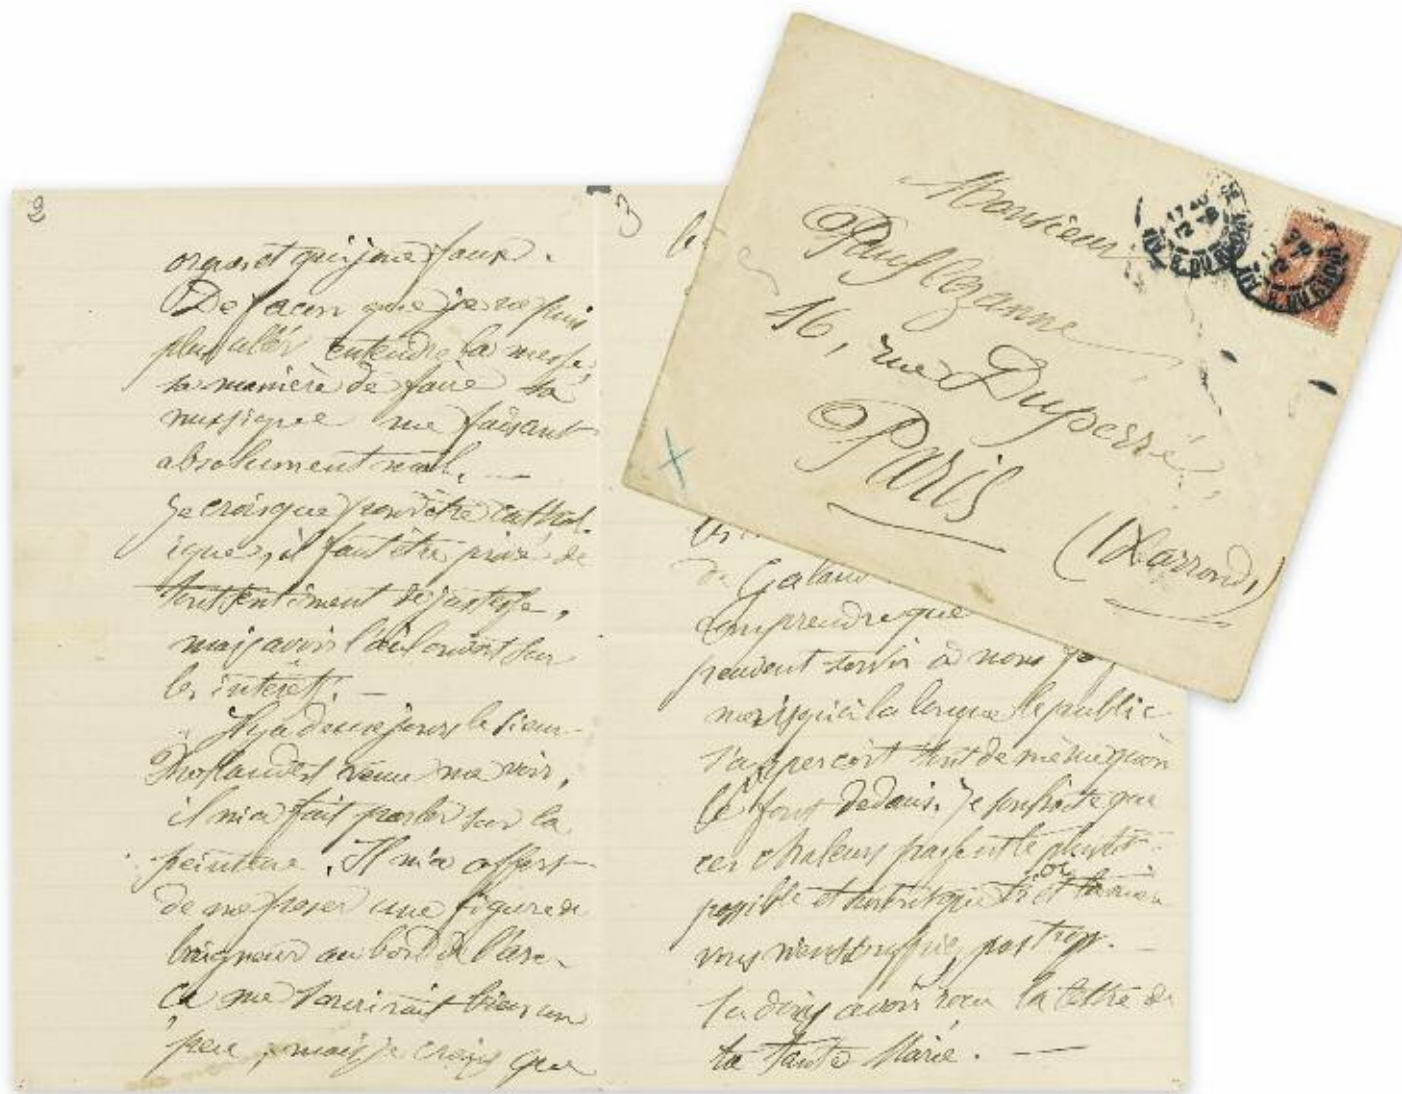 2
orgues et qui joue faux.
De façon que je ne puis
plus aller entendre la messe,
sa manière de faire sa
mussique me faisant
absolument mal. —
Je crois que pour être cathol-
ique, il faut être privé de
tout sentiment de justesse,
mais avoir l'œil ouvert sur
les intérêts. —
Il y a deux jours le sieur
est venu me voir,
il m'a fait parler sur la
peinture. Il m'a offert
de me poser une figure de
baigneur au bord de l'Arc.
Ça me sourirait bien un
peu, mais je crains que
3
de Galand
comprendre que
peuvent servir à nous
mais qu'à la longue le public
s'apperçoit tout de même qu'on
le fout dedans. Je souhaite que
ces chaleurs passent le plus tôt
possible et surtout que toi et ta mère
vous n'en souffriez pas trop. —
Tu dois avoir reçu la lettre de
ta tante Marie. —
Monsieur
Paul Cézanne
16, rue Duperré,
Paris
(IX arrond.)